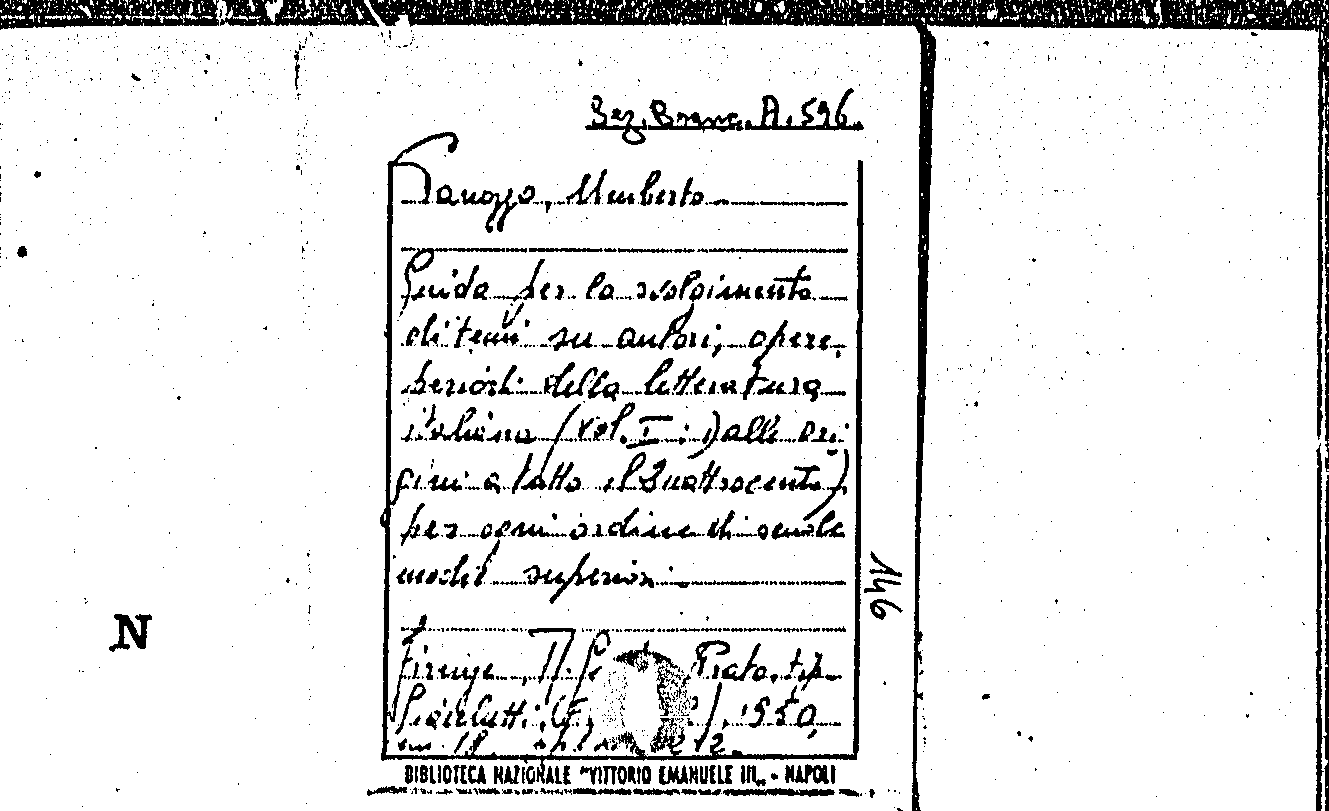 Sez. Branc. A. 596.
Panozzo, Umberto
Guida per lo svolgimento
di temi su autori, opere,
periodi della letteratura
italiana (vol. I: dalle ori
gini a tutto il Quattrocento)
per ogni ordine di scuole
medie superiori. -
146
N
Firenze, Prato, tip.
1950,
in 18.
BIBLIOTECA NAZIONALE "VITTORIO EMANUELE III„ - NAPOLI